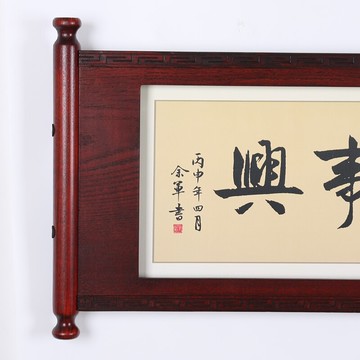 事興
丙申年四月
余軍書